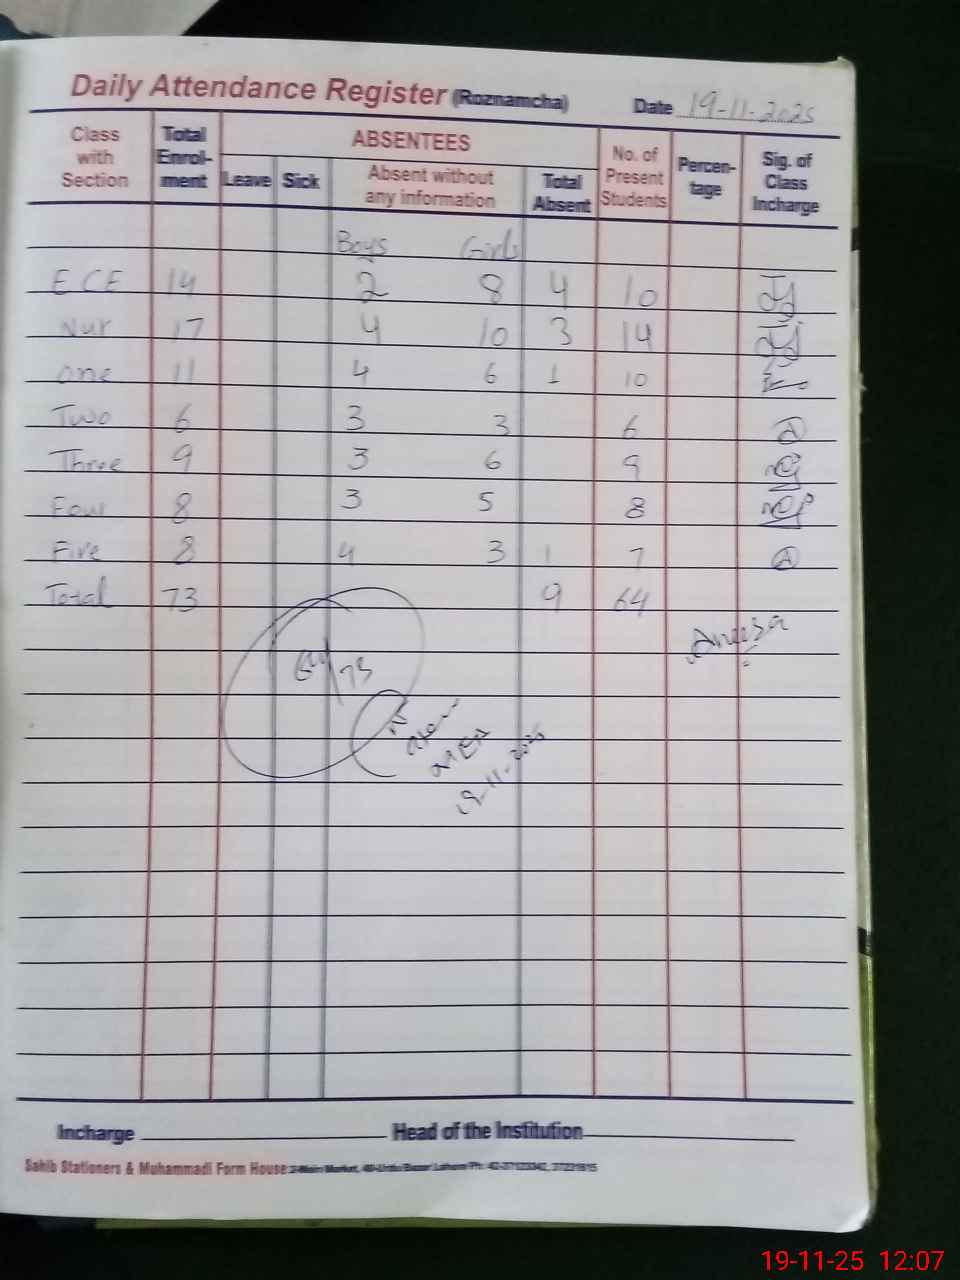 Daily Attendance Register (Roznamcha) Date 19-11-2025
Class with Section Total Enrol-ment ABSENTEES Leave Sick Absent without any information Total Absent No. of Present Students Percen-tage Sig. of Class Incharge
Boys Girls
ECE 14 2 8 4 10
Nur 17 4 10 3 14
one 11 4 6 1 10
Two 6 3 3 6
Three 9 3 6 9
Four 8 3 5 8
Five 8 4 3 1 7
Total 73 9 64
64/73
19-11-2025
Incharge Head of the Institution
Sahib Stationers & Muhammadi Form House: 2-Main Market, 40-Urdu Bazar Lahore Ph:
19-11-25 12:07